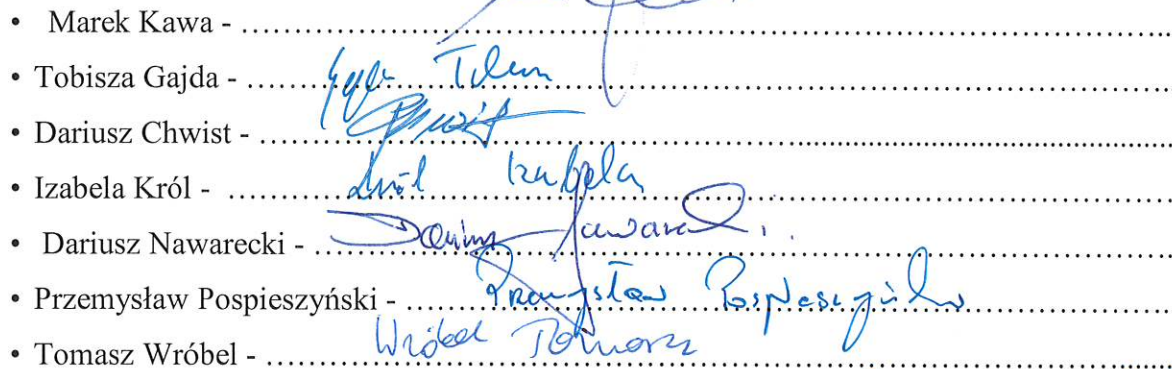 • Marek Kawa - ........................................................................................
• Tobisza Gajda - ........................................................................................
• Dariusz Chwist - ........................................................................................
• Izabela Król - ........ Król Izabela ........................................................................
• Dariusz Nawarecki - ........ Dariusz Nawarecki ........................................................
• Przemysław Pospieszyński - ........ Przemysław Pospieszyński ................................
• Tomasz Wróbel - ........ Wróbel Tomasz ................................................................